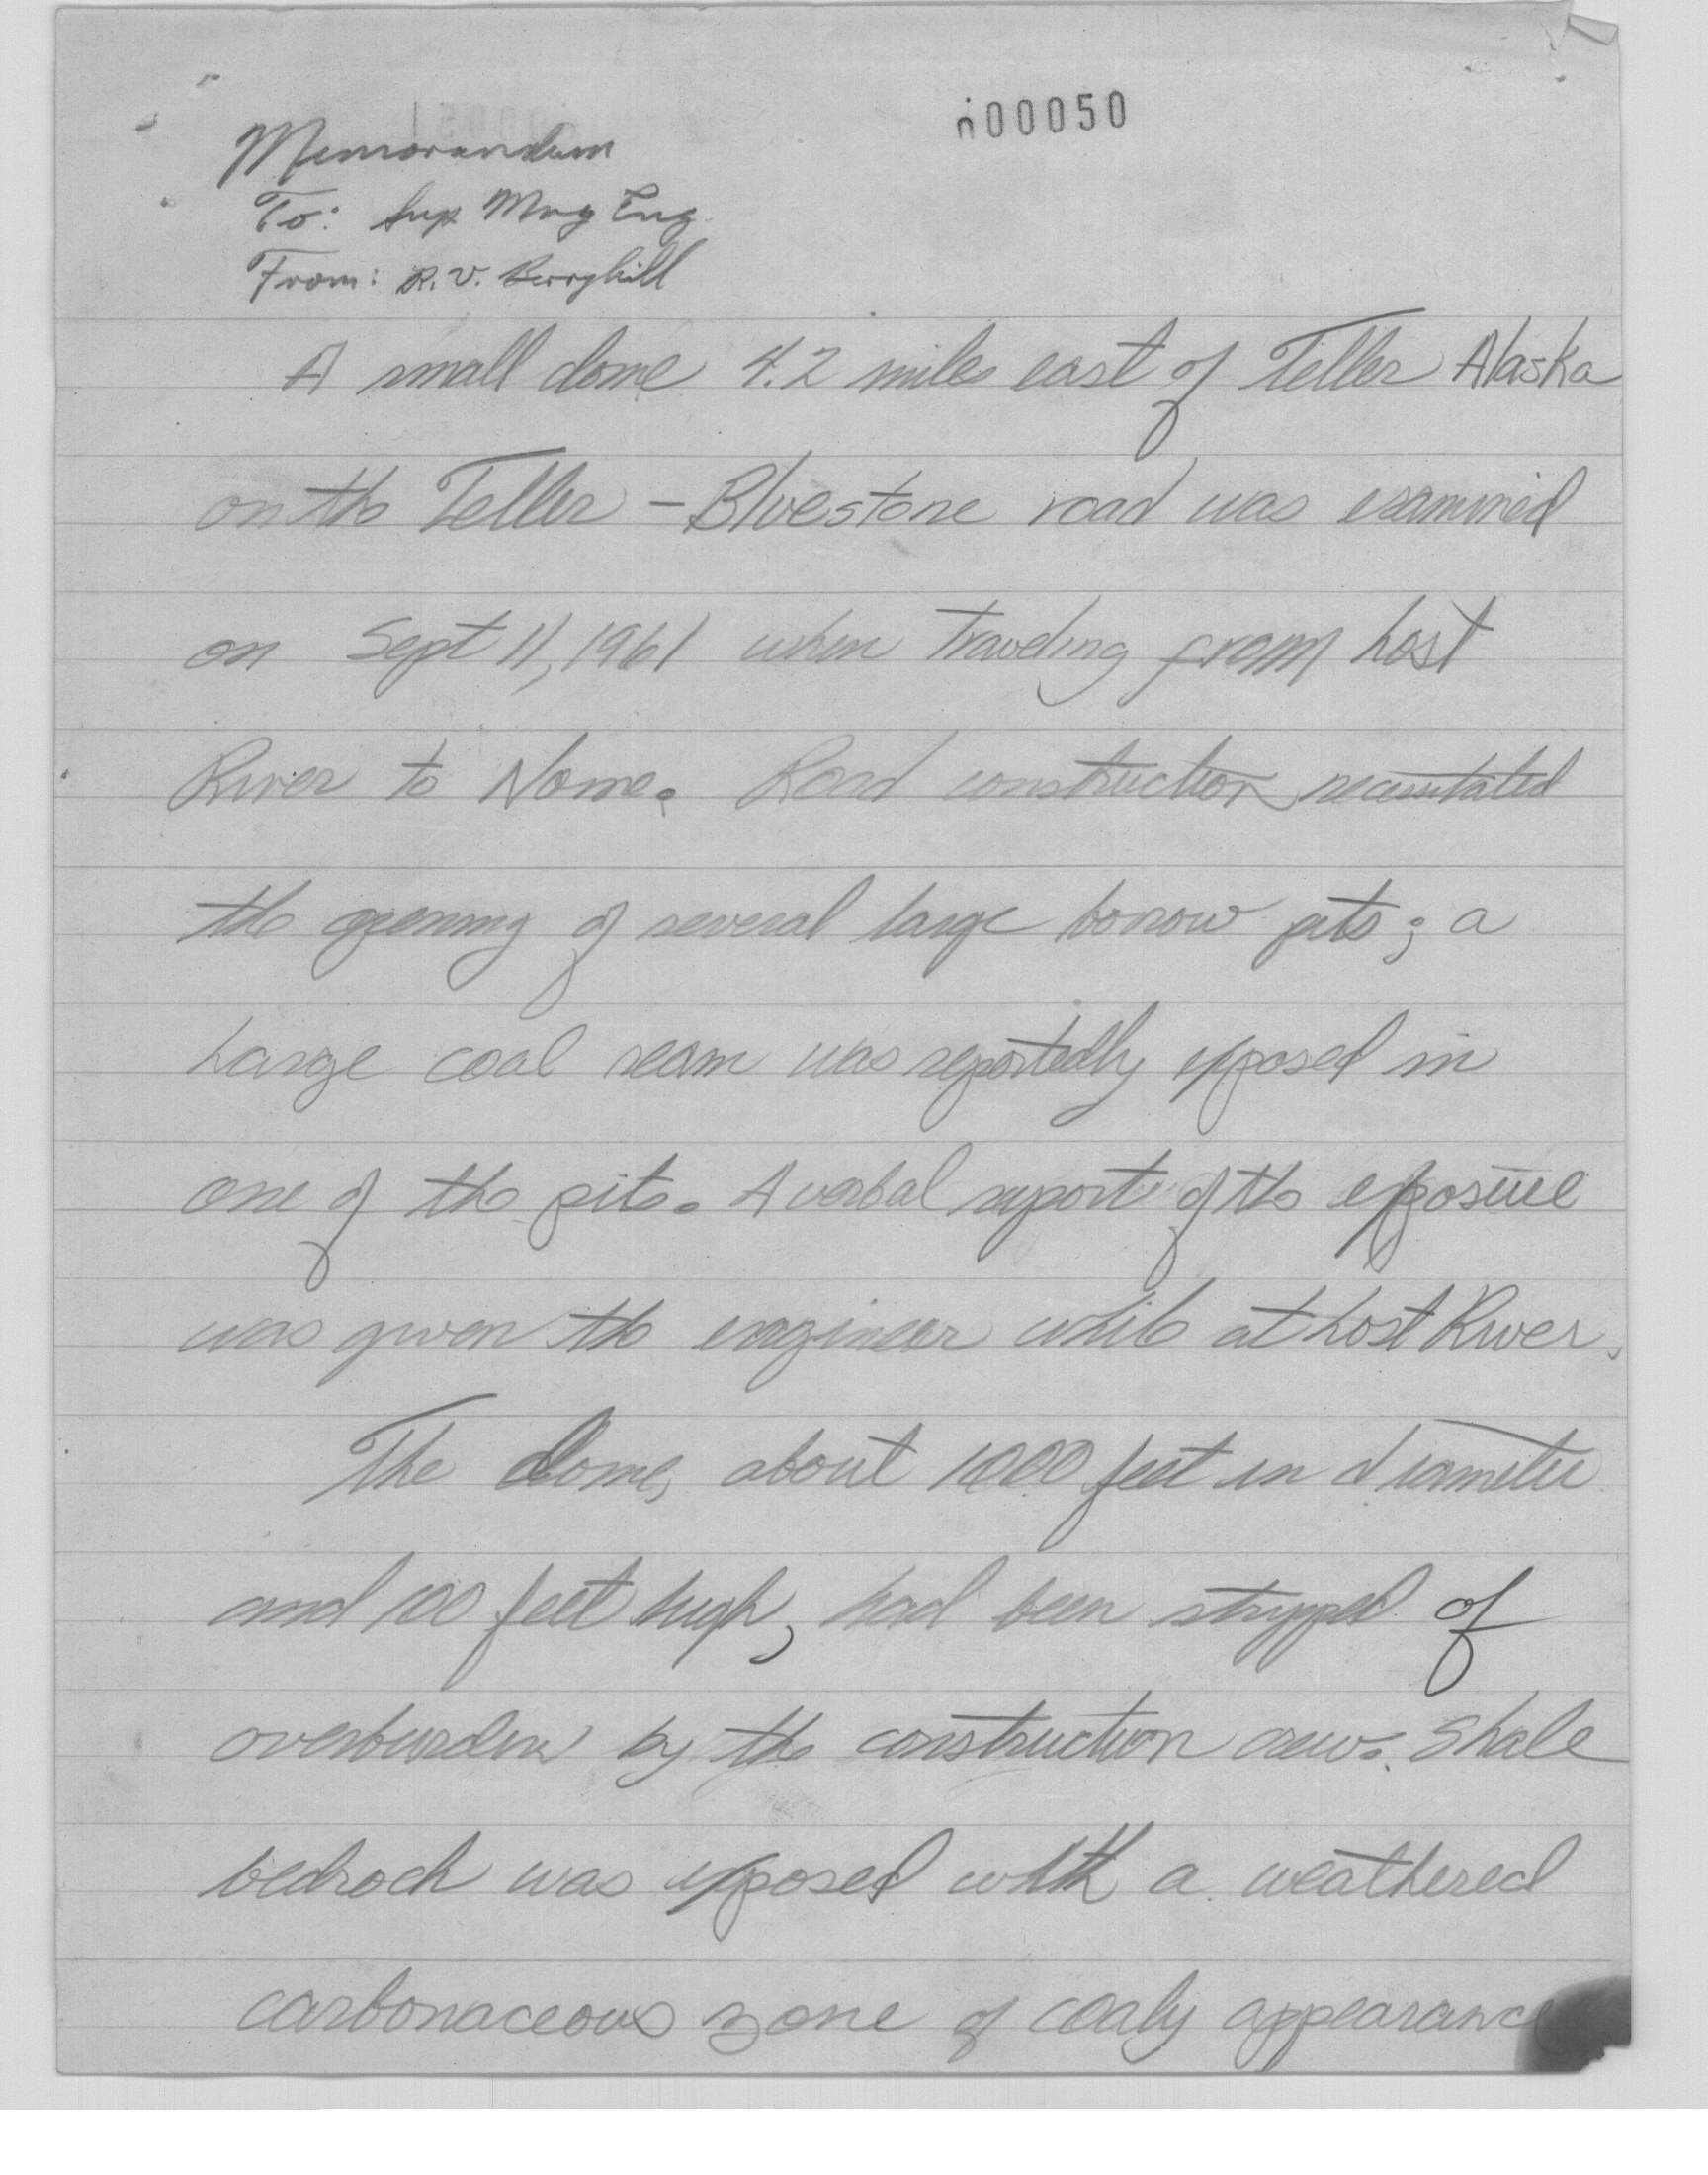 000050
Memorandum
To: Sup Mng Eng
From: R. V. Berryhill
A small dome 4.2 miles east of Teller Alaska
on the Teller - Bluestone road was examined
on Sept 11, 1961 when traveling from Lost
River to Nome. Road construction necessitated
the opening of several large borrow pits; a
Large coal seam was reportedly exposed in
one of the pits. A verbal report of the exposure
was given the engineer while at Lost River.
The dome, about 1000 feet in diameter
and 100 feet high, had been stripped of
overburden by the construction crew. Shale
bedrock was exposed with a weathered
carbonaceous zone of coaly appearance